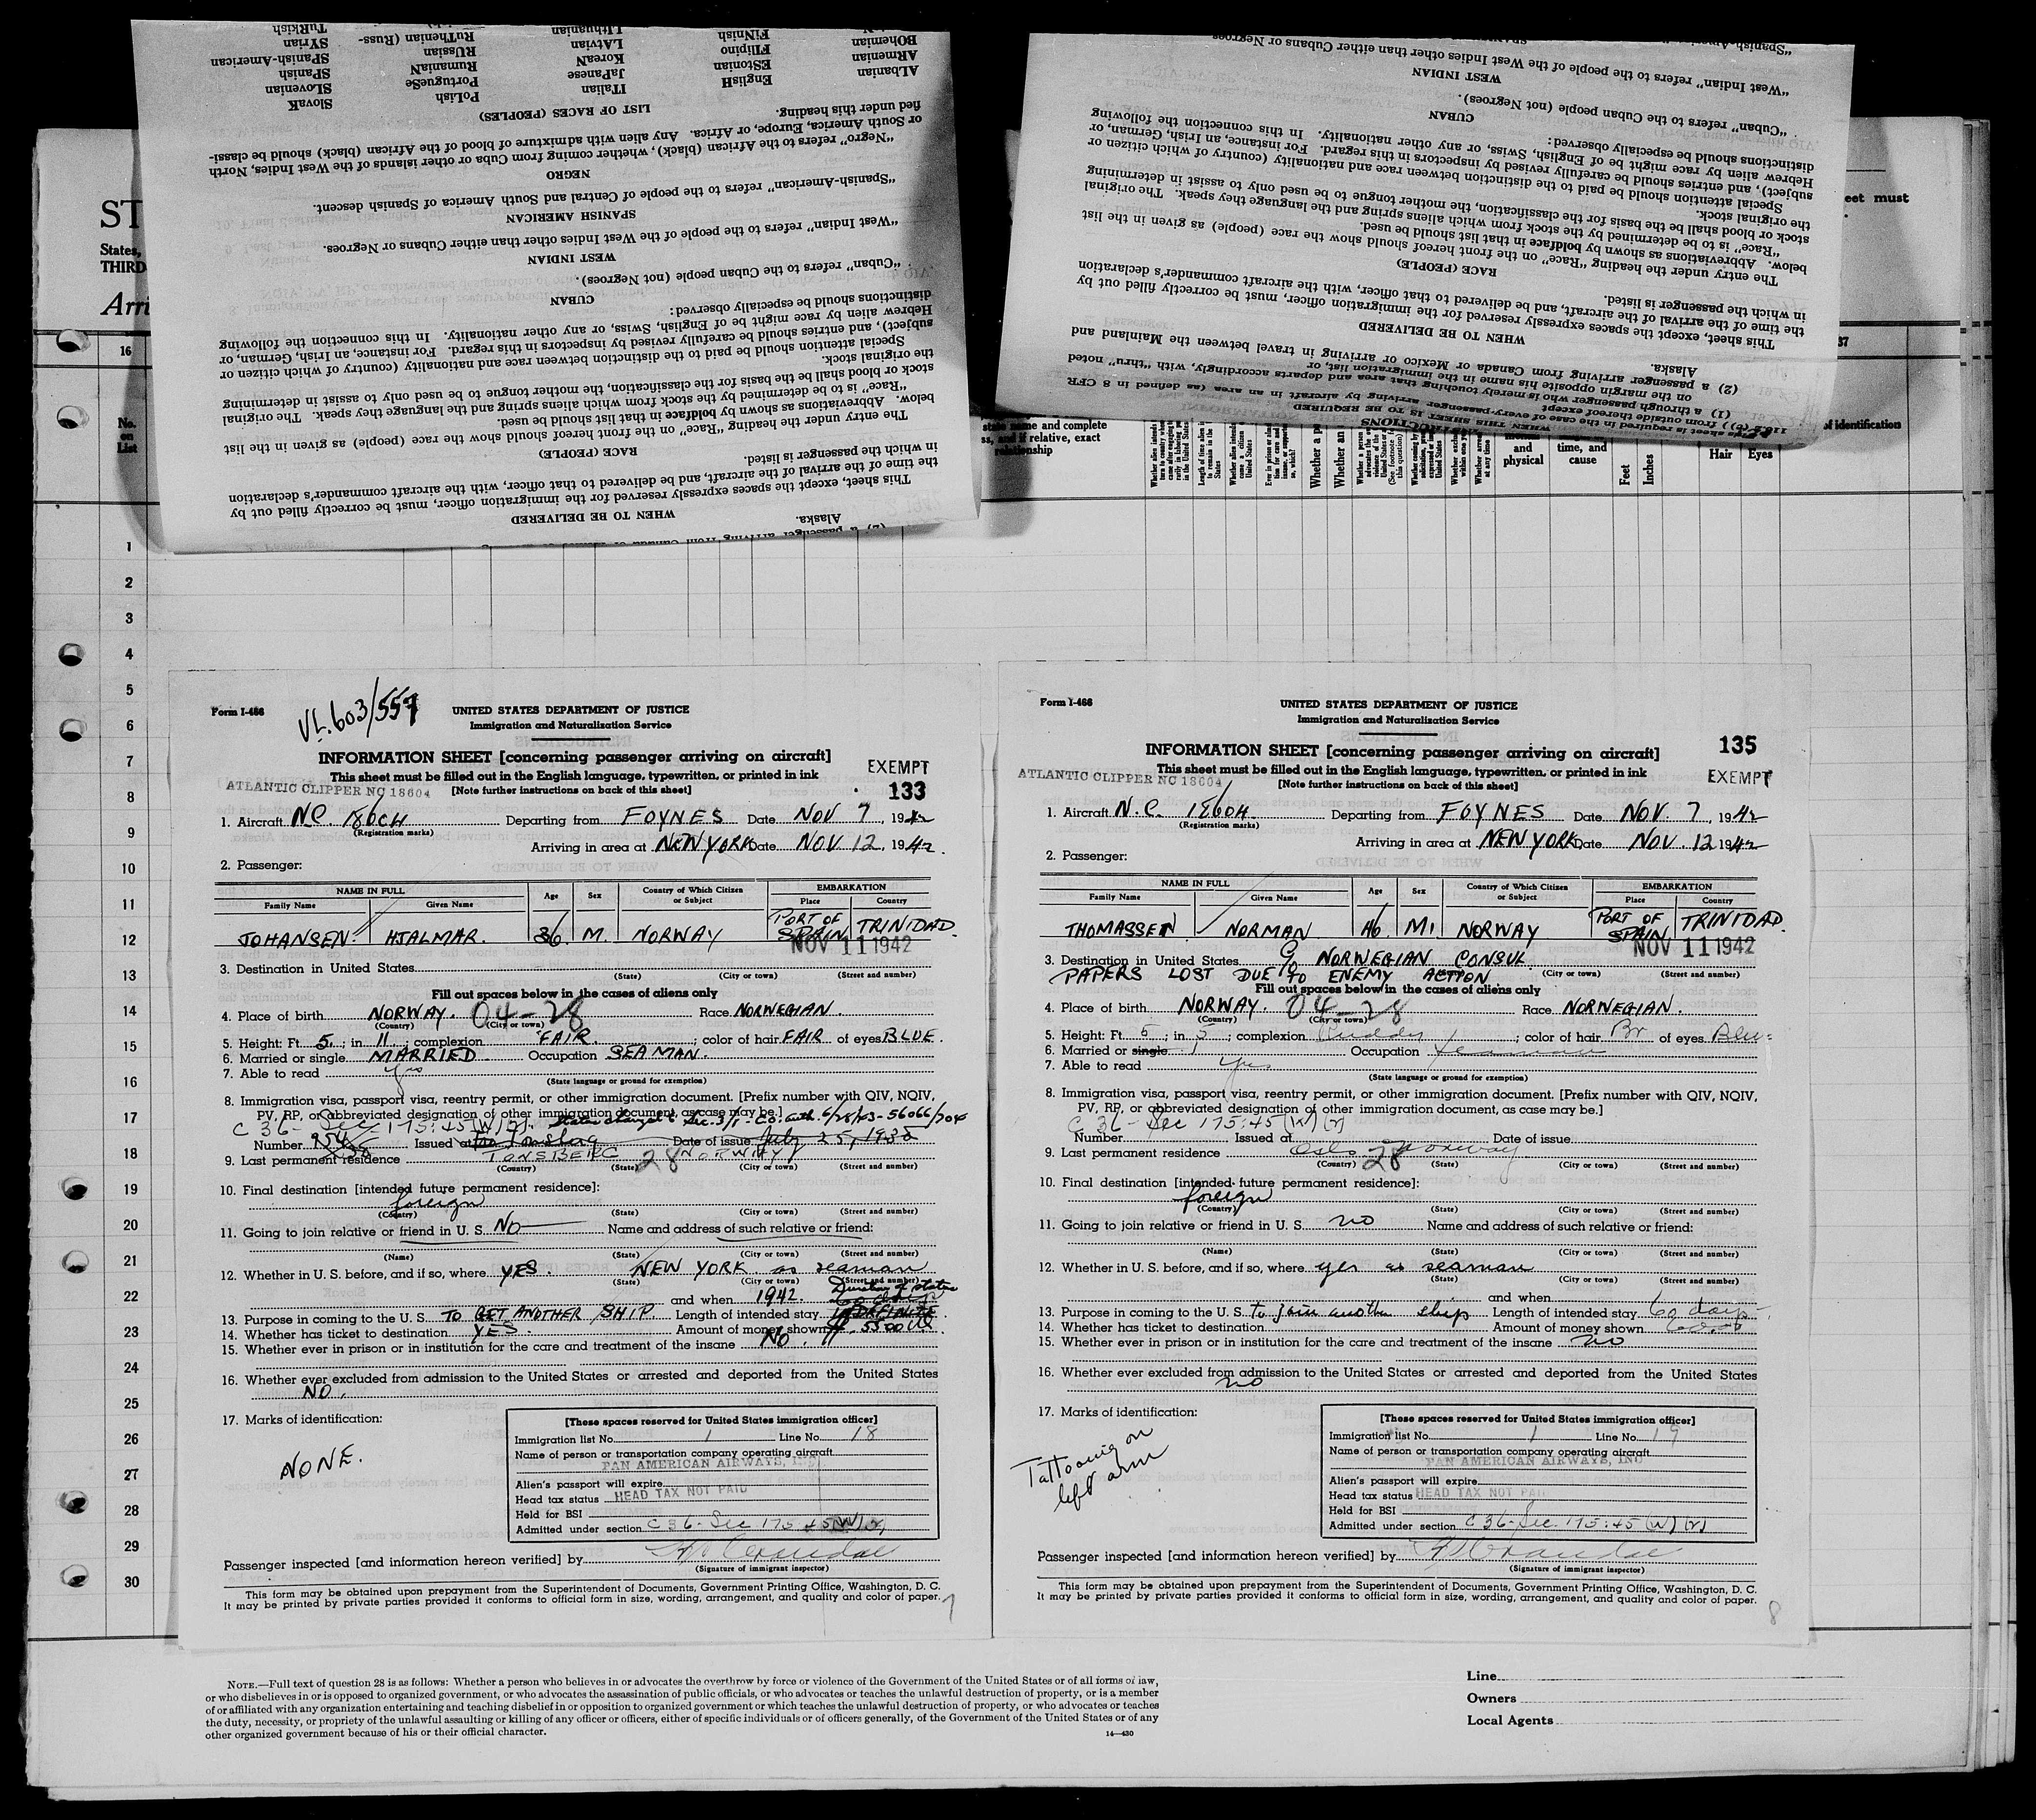 TuRkish
SYrian
SPanish-American
SPanish
SLovenian
SlovaK
RuThenian (Russ-
RUssian
RumaniaN
PortugueSe
PoLish
LIthuanian
LAtvian
KoreaN
JaPanese
ITalian
FiNnish
FIlipino
EStonian
EngliSH
BOhemian
ARmenian
ALbanian
LIST OF RACES (PEOPLES)
fied under this heading.
or South America, Europe, or Africa. Any alien with admixture of blood of the African (black) should be classi-
"Negro" refers to the African (black), whether coming from Cuba or other islands of the West Indies, North
NEGRO
"Spanish-American" refers to the people of Central and South America of Spanish descent.
SPANISH AMERICAN
"West Indian" refers to the people of the West Indies other than either Cubans or Negroes.
WEST INDIAN
"Cuban" refers to the Cuban people (not Negroes).
CUBAN
distinctions should be especially observed:
Hebrew alien by race might be of English, Swiss, or any other nationality. In this connection the following
subject), and entries should be carefully revised by inspectors in this regard. For instance, an Irish, German, or
Special attention should be paid to the distinction between race and nationality (country of which citizen or
the original stock.
stock or blood shall be the basis for the classification, the mother tongue to be used only to assist in determining
"Race" is to be determined by the stock from which aliens spring and the language they speak. The original
below. Abbreviations as shown by boldface in that list should be used.
The entry under the heading "Race" on the front hereof should show the race (people) as given in the list
RACE (PEOPLE)
in which the passenger is listed.
the time of the arrival of the aircraft, and be delivered to that officer, with the aircraft commander's declaration
This sheet, except the spaces expressly reserved for the immigration officer, must be correctly filled out by
WHEN TO BE DELIVERED
Alaska.
(2) a passenger arriving from Canada or Mexico or arriving in travel between the Mainland and
"West Indian" refers to the people of the West Indies other than either Cubans or Negroes
WEST INDIAN
"Cuban" refers to the Cuban people (not Negroes).
CUBAN
distinctions should be especially observed:
Hebrew alien by race might be of English, Swiss, or any other nationality. In this connection the following
subject), and entries should be carefully revised by inspectors in this regard. For instance, an Irish, German, or
Special attention should be paid to the distinction between race and nationality (country of which citizen or
the original stock.
stock or blood shall be the basis for the classification, the mother tongue to be used only to assist in determining
"Race" is to be determined by the stock from which aliens spring and the language they speak. The original
below. Abbreviations as shown by boldface in that list should be used.
The entry under the heading "Race" on the front hereof should show the race (people) as given in the list
RACE (PEOPLE)
in which the passenger is listed.
the time of the arrival of the aircraft, and be delivered to that officer, with the aircraft commander's declaration
This sheet, except the spaces expressly reserved for the immigration officer, must be correctly filled out by
WHEN TO BE DELIVERED
Alaska.
(2) a passenger arriving from Canada or Mexico or arriving in travel between the Mainland and
on the margin opposite his name in the immigration list, or
(1) a through passenger who is merely touching that area and departs accordingly, with "thru" noted
from outside thereof except
This sheet is required in the case of every passenger arriving by aircraft in an area (as defined in 8 CFR
WHEN THIS SHEET IS TO BE REQUIRED
INSTRUCTIONS
ST
States,
THIRD
Arri
eet must
16
37
No.
on
List
state name and complete
ss, and if relative, exact
relationship
and
physical
time, and
cause
Feet
Inches
Hair
Eyes
of identification
1
2
3
4
5
6
7
8
9
10
11
12
13
14
15
16
17
18
19
20
21
22
23
24
25
26
27
28
29
30
Form I-466
VL.603/557
UNITED STATES DEPARTMENT OF JUSTICE
Immigration and Naturalization Service
INFORMATION SHEET [concerning passenger arriving on aircraft]
EXEMPT
This sheet must be filled out in the English language, typewritten, or printed in ink
ATLANTIC CLIPPER NC 18604
[Note further instructions on back of this sheet]
133
1. Aircraft NC. 18604 Departing from FOYNES Date NOV 7, 1942
(Registration marks)
Arriving in area at NEW YORK Date NOV 12, 1942.
2. Passenger:
NAME IN FULL
Age
Sex
Country of Which Citizen
or Subject
EMBARKATION
Family Name
Given Name
Place
Country
JOHANSEN. HJALMAR. 36. M. NORWAY PORT OF SPAIN TRINIDAD.
NOV 11 1942
3. Destination in United States
(State) (City or town) (Street and number)
Fill out spaces below in the cases of aliens only
4. Place of birth NORWAY. 04-28 Race NORWEGIAN.
(Country) (City or town)
5. Height: Ft. 5; in 11; complexion FAIR.; color of hair FAIR of eyes BLUE.
6. Married or single MARRIED Occupation SEAMAN.
7. Able to read yes
(State language or ground for exemption)
8. Immigration visa, passport visa, reentry permit, or other immigration document. [Prefix number with QIV, NQIV,
PV, RP, or abbreviated designation of other immigration document, as case may be.]
C 36- Sec 175:45(W)(2). Status changed to Sec. 3/1- C.O. auth. 6/28/43-56066/704
Number Issued at Tonsberg Date of issue July 25, 1938
9. Last permanent residence TONSBERG 28 NORWAY
(Country) (State) (City or town) (Street and number)
10. Final destination [intended future permanent residence]:
foreign
(Country) (State) (City or town) (Street and number)
11. Going to join relative or friend in U. S. NO Name and address of such relative or friend:
(Name) (State) (City or town) (Street and number)
12. Whether in U. S. before, and if so, where YES. NEW YORK as seaman
(State) (City or town) (Street and number)
and when 1942. Duration of status
60 days
13. Purpose in coming to the U. S. TO GET ANOTHER SHIP. Length of intended stay INDEFINITE.
14. Whether has ticket to destination YES. Amount of money shown
15. Whether ever in prison or in institution for the care and treatment of the insane NO.
16. Whether ever excluded from admission to the United States or arrested and deported from the United States
NO.
17. Marks of identification:
NONE.
[These spaces reserved for United States immigration officer]
Immigration list No. 1 Line No. 18
Name of person or transportation company operating aircraft
PAN AMERICAN AIRWAYS, INC
Alien's passport will expire
Head tax status HEAD TAX NOT PAID
Held for BSI
Admitted under section C 36- Sec 175:45(W)(2)
Passenger inspected [and information hereon verified] by
(Signature of immigrant inspector)
This form may be obtained upon prepayment from the Superintendent of Documents, Government Printing Office, Washington, D. C.
It may be printed by private parties provided it conforms to official form in size, wording, arrangement, and quality and color of paper.
7
Form I-466
UNITED STATES DEPARTMENT OF JUSTICE
Immigration and Naturalization Service
135
INFORMATION SHEET [concerning passenger arriving on aircraft]
This sheet must be filled out in the English language, typewritten, or printed in ink
EXEMPT
ATLANTIC CLIPPER NC 18604
[Note further instructions on back of this sheet]
1. Aircraft N.C. 18604 Departing from FOYNES Date NOV. 7, 1942
(Registration marks)
Arriving in area at NEW YORK Date NOV. 12 1942
2. Passenger:
NAME IN FULL
Age
Sex
Country of Which Citizen
or Subject
EMBARKATION
Family Name
Given Name
Place
Country
THOMASSEN NORMAN 46 M. NORWAY PORT OF SPAIN TRINIDAD.
NOV 11 1942
3. Destination in United States C/o NORWEGIAN CONSUL
PAPERS LOST DUE TO ENEMY ACTION
(City or town) (Street and number)
Fill out spaces below in the cases of aliens only
4. Place of birth NORWAY. 04-28 Race NORWEGIAN.
(Country) (City or town)
5. Height: Ft. 5; in 5; complexion Ruddy; color of hair Br of eyes Blue
6. Married or single Occupation seaman
7. Able to read yes
(State language or ground for exemption)
8. Immigration visa, passport visa, reentry permit, or other immigration document. [Prefix number with QIV, NQIV,
PV, RP, or abbreviated designation of other immigration document, as case may be.]
C 36- Sec 175:45(W)(2)
Number Issued at Date of issue
9. Last permanent residence Oslo 28 Norway
(Country) (State) (City or town) (Street and number)
10. Final destination [intended future permanent residence]:
foreign
(Country) (State) (City or town) (Street and number)
11. Going to join relative or friend in U. S. no Name and address of such relative or friend:
(Name) (State) (City or town) (Street and number)
12. Whether in U. S. before, and if so, where yes as seaman
(State) (City or town) (Street and number)
and when
13. Purpose in coming to the U. S. to join another ship Length of intended stay 60 days
14. Whether has ticket to destination Amount of money shown
15. Whether ever in prison or in institution for the care and treatment of the insane no
16. Whether ever excluded from admission to the United States or arrested and deported from the United States
no
17. Marks of identification:
Tattooing on
left arm
[These spaces reserved for United States immigration officer]
Immigration list No. 1 Line No. 19
Name of person or transportation company operating aircraft
PAN AMERICAN AIRWAYS, INC
Alien's passport will expire
Head tax status HEAD TAX NOT PAID
Held for BSI
Admitted under section C 36-Sec. 175:45(W)(2)
Passenger inspected [and information hereon verified] by
(Signature of immigrant inspector)
This form may be obtained upon prepayment from the Superintendent of Documents, Government Printing Office, Washington, D. C.
It may be printed by private parties provided it conforms to official form in size, wording, arrangement, and quality and color of paper.
8
NOTE.—Full text of question 28 is as follows: Whether a person who believes in or advocates the overthrow by force or violence of the Government of the United States or of all forms of law,
or who disbelieves in or is opposed to organized government, or who advocates the assassination of public officials, or who advocates or teaches the unlawful destruction of property, or is a member
of or affiliated with any organization entertaining and teaching disbelief in or opposition to organized government or which teaches the unlawful destruction of property, or who advocates or teaches
the duty, necessity, or propriety of the unlawful assaulting or killing of any officer or officers, either of specific individuals or of officers generally, of the Government of the United States or of any
other organized government because of his or their official character.
14—430
Line
Owners
Local Agents